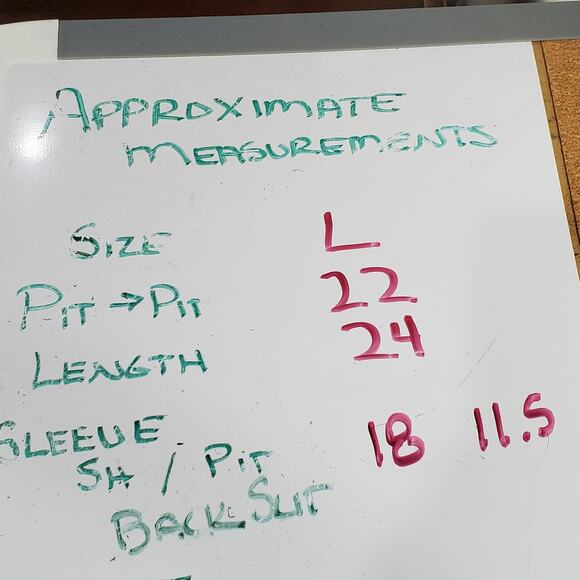 APPROXIMATE
MEASUREMENTS
SIZE L
PIT → PIT 22
LENGTH 24
SLEEVE 18 11.5
SH / PIT
BACK SLIT